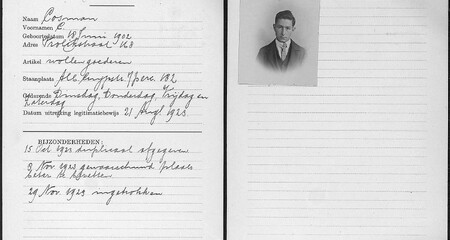 Naam Cosman
Voornamen C.
Geboortedatum 18 Juni 1902
Adres
Artikel wollengoederen
Staanplaats Alb. Cuypstr.
Gedurende Dinsdag, Donderdag, Vrijdag en
Zaterdag
Datum uitreiking legitimatiebewijs 21 Aug. 1923
BIJZONDERHEDEN:
15 Oct 1923 duplicaat afgegeven
8 Nov. 1923 gewaarschuwd plaats
beter te bezetten
29 Nov. 1923 ingetrokken